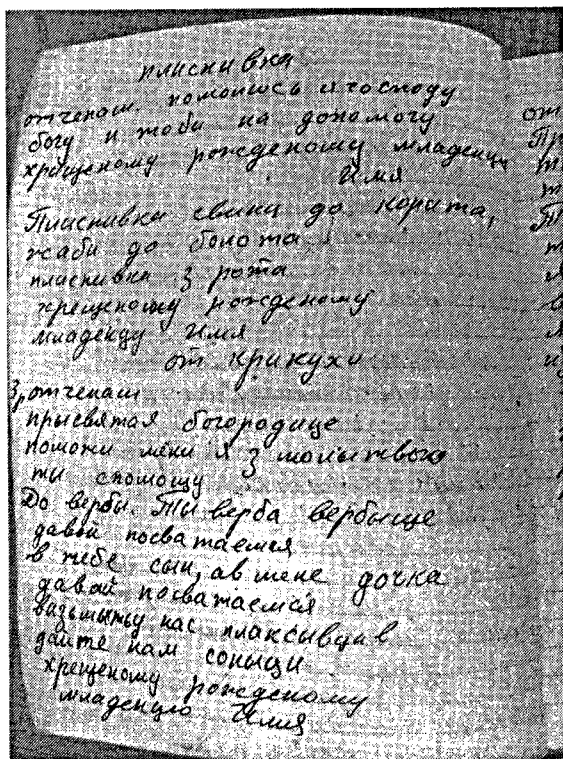 плиснивка
отченаш. помолюсь я господу
богу и тоби на допомогу
хрищеному рожденому младенцу
Имя
Плиснивки свинци до корита,
жаби до болота
плиснивки з рота
хрещеному рожденому
младенцу Имя
от крикухи
3, отченаш
прысвятая богородице
поможи мени я з молытвою
ты спомощу
До верби. Ты верба вербыще
давай посватаемся
в тебе сын, а в мене дочка
давай посватаемся
визьмыть у нас плаксывци в
дайте нам соныци
хрещеному рожденому
младенцю Имя
от
Пр